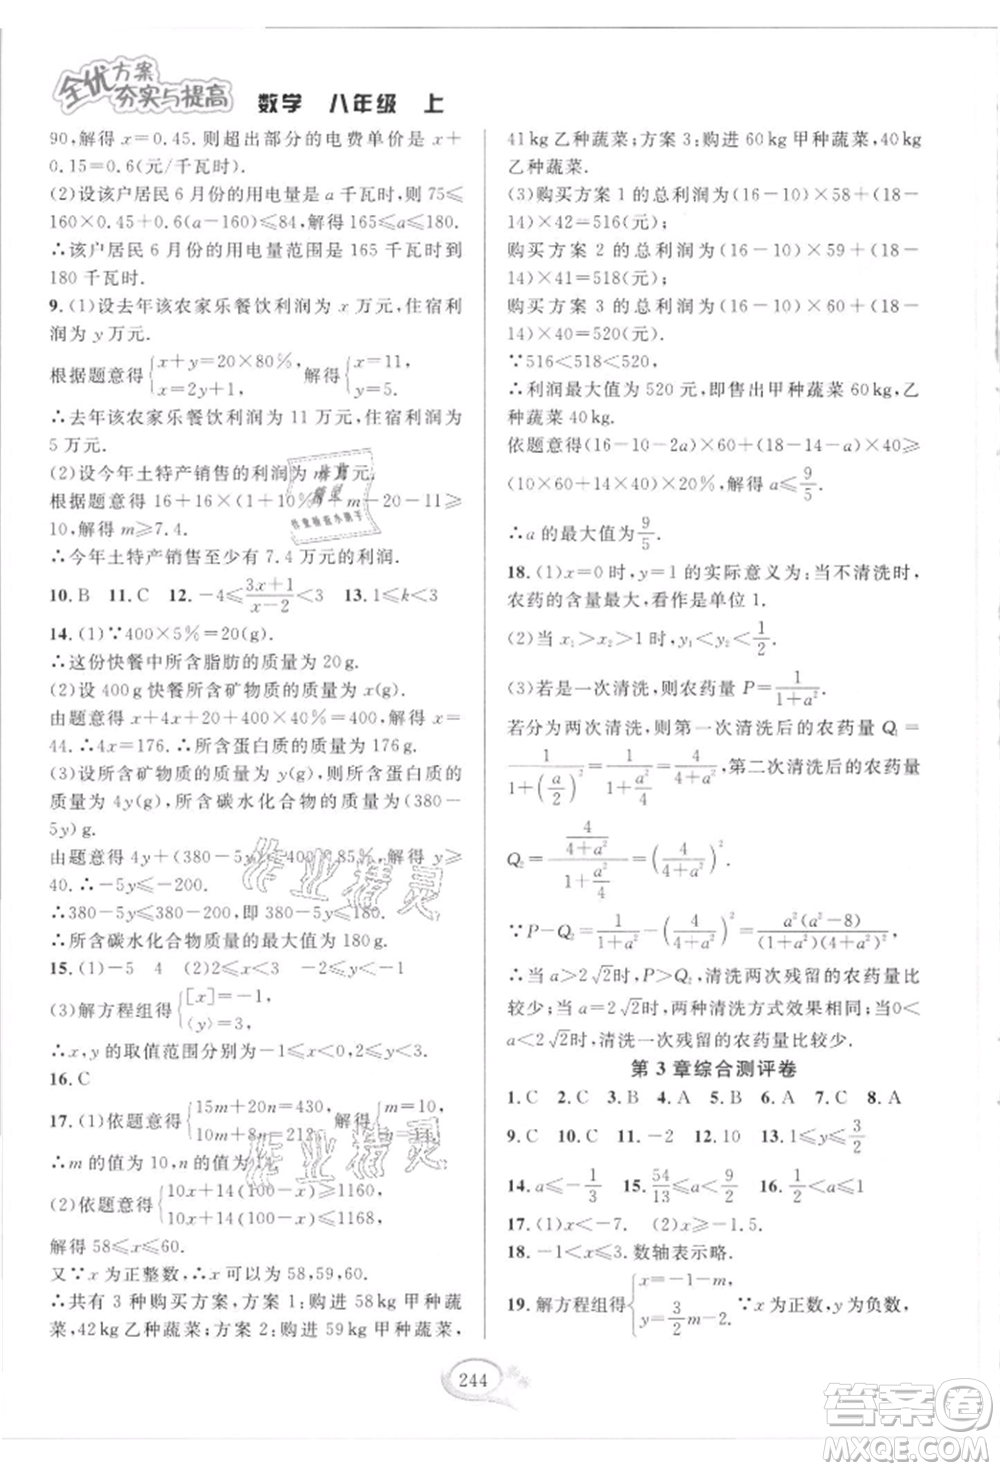 全优方案
夯实与提高 数学 八年级 上
90,解得 x=0.45. 则超出部分的电费单价是 x+
0.15=0.6(元/千瓦时).
(2)设该户居民 6 月份的用电量是 a 千瓦时,则 75≤
160×0.45+0.6(a-160)≤84,解得 165≤a≤180.
∴该户居民 6 月份的用电量范围是 165 千瓦时到
180 千瓦时.
9. (1)设去年该农家乐餐饮利润为 x 万元,住宿利
润为 y 万元.
根据题意得{x+y=20×80%, x=2y+1, 解得{x=11, y=5.
∴去年该农家乐餐饮利润为 11 万元,住宿利润为
5 万元.
(2)设今年土特产销售的利润为 m 万元.
根据题意得 16+16×(1+10%)+m-20-11≥
10,解得 m≥7.4.
∴今年土特产销售至少有 7.4 万元的利润.
10. B 11. C 12. -4≤(3x+1)/(x-2)<3 13. 1≤k<3
14. (1)∵400×5%=20(g).
∴这份快餐中所含脂肪的质量为 20 g.
(2)设 400 g 快餐所含矿物质的质量为 x(g).
由题意得 x+4x+20+400×40%=400,解得 x=
44. ∴4x=176. ∴所含蛋白质的质量为 176 g.
(3)设所含矿物质的质量为 y(g),则所含蛋白质的
质量为 4y(g),所含碳水化合物的质量为(380-
5y) g.
由题意得 4y+(380-5y)≤400×85%,解得 y≥
40. ∴-5y≤-200.
∴380-5y≤380-200,即 380-5y≤180.
∴所含碳水化合物质量的最大值为 180 g.
15. (1)-5 4 (2)2≤x<3 -2≤y<-1
(3)解方程组得{[x]=-1, ⟨y⟩=3,
∴x,y 的取值范围分别为-1≤x<0,2≤y<3.
16. C
17. (1)依题意得{15m+20n=430, 10m+8n=212, 解得{m=10, n=14.
∴m 的值为 10,n 的值为 14.
(2)依题意得{10x+14(100-x)≥1160, 10x+14(100-x)≤1168,
解得 58≤x≤60.
又∵x 为正整数,∴x 可以为 58,59,60.
∴共有 3 种购买方案,方案 1:购进 58 kg 甲种蔬
菜,42 kg 乙种蔬菜;方案 2:购进 59 kg 甲种蔬菜,
41 kg 乙种蔬菜;方案 3:购进 60 kg 甲种蔬菜,40 kg
乙种蔬菜.
(3)购买方案 1 的总利润为(16-10)×58+(18-
14)×42=516(元);
购买方案 2 的总利润为(16-10)×59+(18-
14)×41=518(元);
购买方案 3 的总利润为(16-10)×60+(18-
14)×40=520(元).
∵516<518<520,
∴利润最大值为 520 元,即售出甲种蔬菜 60 kg,乙
种蔬菜 40 kg.
依题意得(16-10-2a)×60+(18-14-a)×40≥
(10×60+14×40)×20%,解得 a≤9/5.
∴a 的最大值为 9/5.
18. (1)x=0 时,y=1 的实际意义为:当不清洗时,
农药的含量最大,看作是单位 1.
(2)当 x₁>x₂>1 时,y₁<y₂<1/2.
(3)若是一次清洗,则农药量 P=1/(1+a²).
若分为两次清洗,则第一次清洗后的农药量 Q₁=
1/(1+(a/2)²)=1/(1+a²/4)=4/(4+a²),第二次清洗后的农药量
Q₂=(4/(4+a²))/(1+a²/4)=(4/(4+a²))².
∵P-Q₂=1/(1+a²)-(4/(4+a²))²=a²(a²-8)/((1+a²)(4+a²)²),
∴当 a>2√2时,P>Q₂,清洗两次残留的农药量比
较少;当 a=2√2时,两种清洗方式效果相同;当 0<
a<2√2时,一次残留的农药量比较少.
第 3 章综合测评卷
1. C 2. C 3. B 4. A 5. B 6. A 7. C 8. A
9. C 10. C 11. -2 12. 10 13. 1≤y≤3/2
14. a≤-1/3 15. 54/13≤a≤9/2 16. -2≤a≤1
17. (1)x<-7. (2)x≥-1.5.
18. -1<x≤3. 数轴表示略.
19. 解方程组得{x=-1-m, y=3/2m-2. ∵x 为正数,y 为负数,
244
作业精灵
作业精灵
答案圈
MXQE.COM